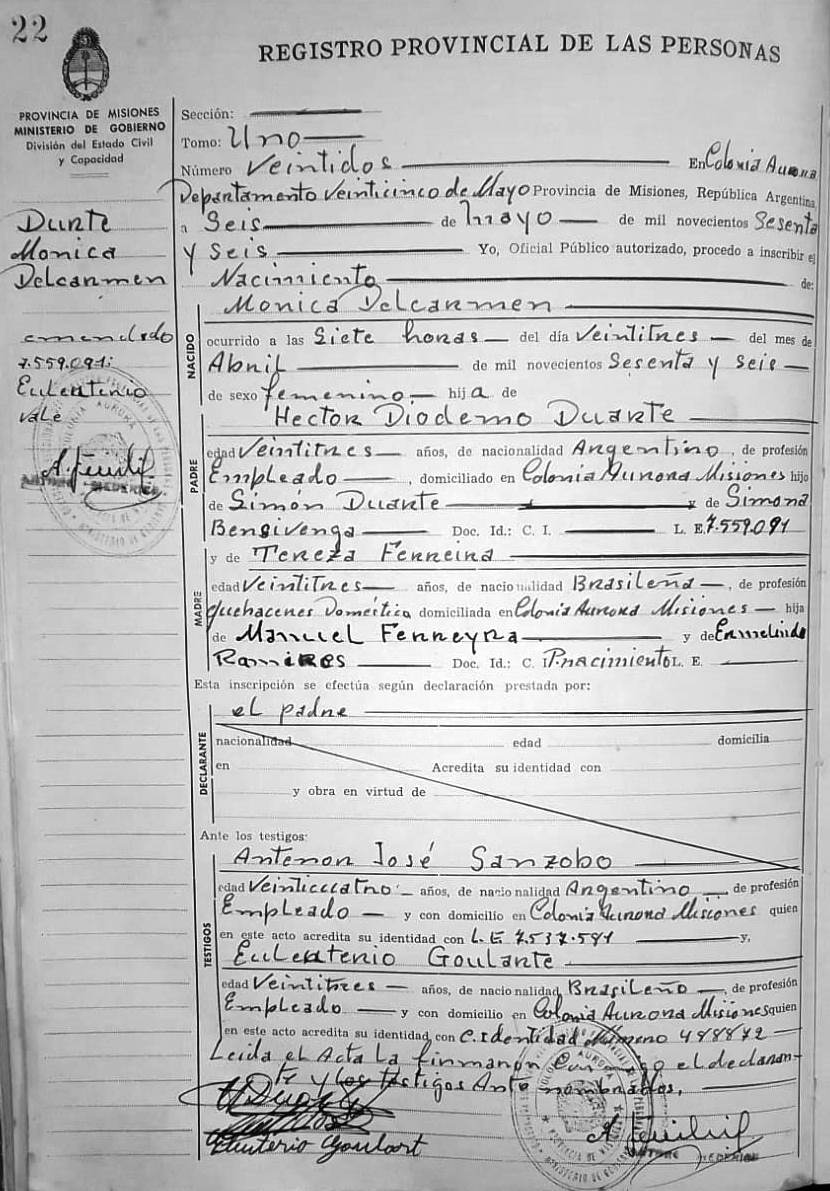 22
REGISTRO PROVINCIAL DE LAS PERSONAS
PROVINCIA DE MISIONES
MINISTERIO DE GOBIERNO
División del Estado Civil
y Capacidad
Durte
Monica
Delcarmen
emendado
7.559.091:
Euleuterio
vale
Sección:
Tomo: Uno
Número Veintidos En Colonia Aurora
Departamento Veinticinco de Mayo Provincia de Misiones, República Argentina,
a Seis de mayo de mil novecientos Sesenta
y Seis Yo, Oficial Público autorizado, procedo a inscribir el
Nacimiento de:
Monica Delcarmen
NACIDO
ocurrido a las Siete horas del día Veintitres del mes de
Abril de mil novecientos Sesenta y seis
de sexo femenino hija de
Hector Diodemo Duarte
PADRE
edad Veintitres años, de nacionalidad Argentino, de profesión
Empleado, domiciliado en Colonia Aurora Misiones hijo
de Simón Duarte y de Simona
Bensivenga Doc. Id.: C. I. L. E. 7.559.091
y de Tereza Ferreira
MADRE
edad Veintitres años, de nacionalidad Brasileña, de profesión
Quehaceres Doméstica domiciliada en Colonia Aurora Misiones hija
de Manuel Ferreyra y de Ermelinda
Ramires Doc. Id.: C. I P.nacimiento L. E.
Esta inscripción se efectúa según declaración prestada por:
el padre
DECLARANTE
nacionalidad edad domicilia
en Acredita su identidad con
y obra en virtud de
Ante los testigos:
Antenor José Sanzobo
TESTIGOS
edad Veinticuatro años, de nacionalidad Argentino de profesión
Empleado y con domicilio en Colonia Aurora Misiones quien
en este acto acredita su identidad con L.E 7.537.591 y,
Euleuterio Goularte
edad Veintitres años, de nacionalidad Brasileño, de profesión
Empleado y con domicilio en Colonia Aurora Misiones quien
en este acto acredita su identidad con C.Identidad Número 488872
Leida el Acta La firman Conmigo el declaran-
te y los testigos Ante nombrados,
Eleuterio Goulart